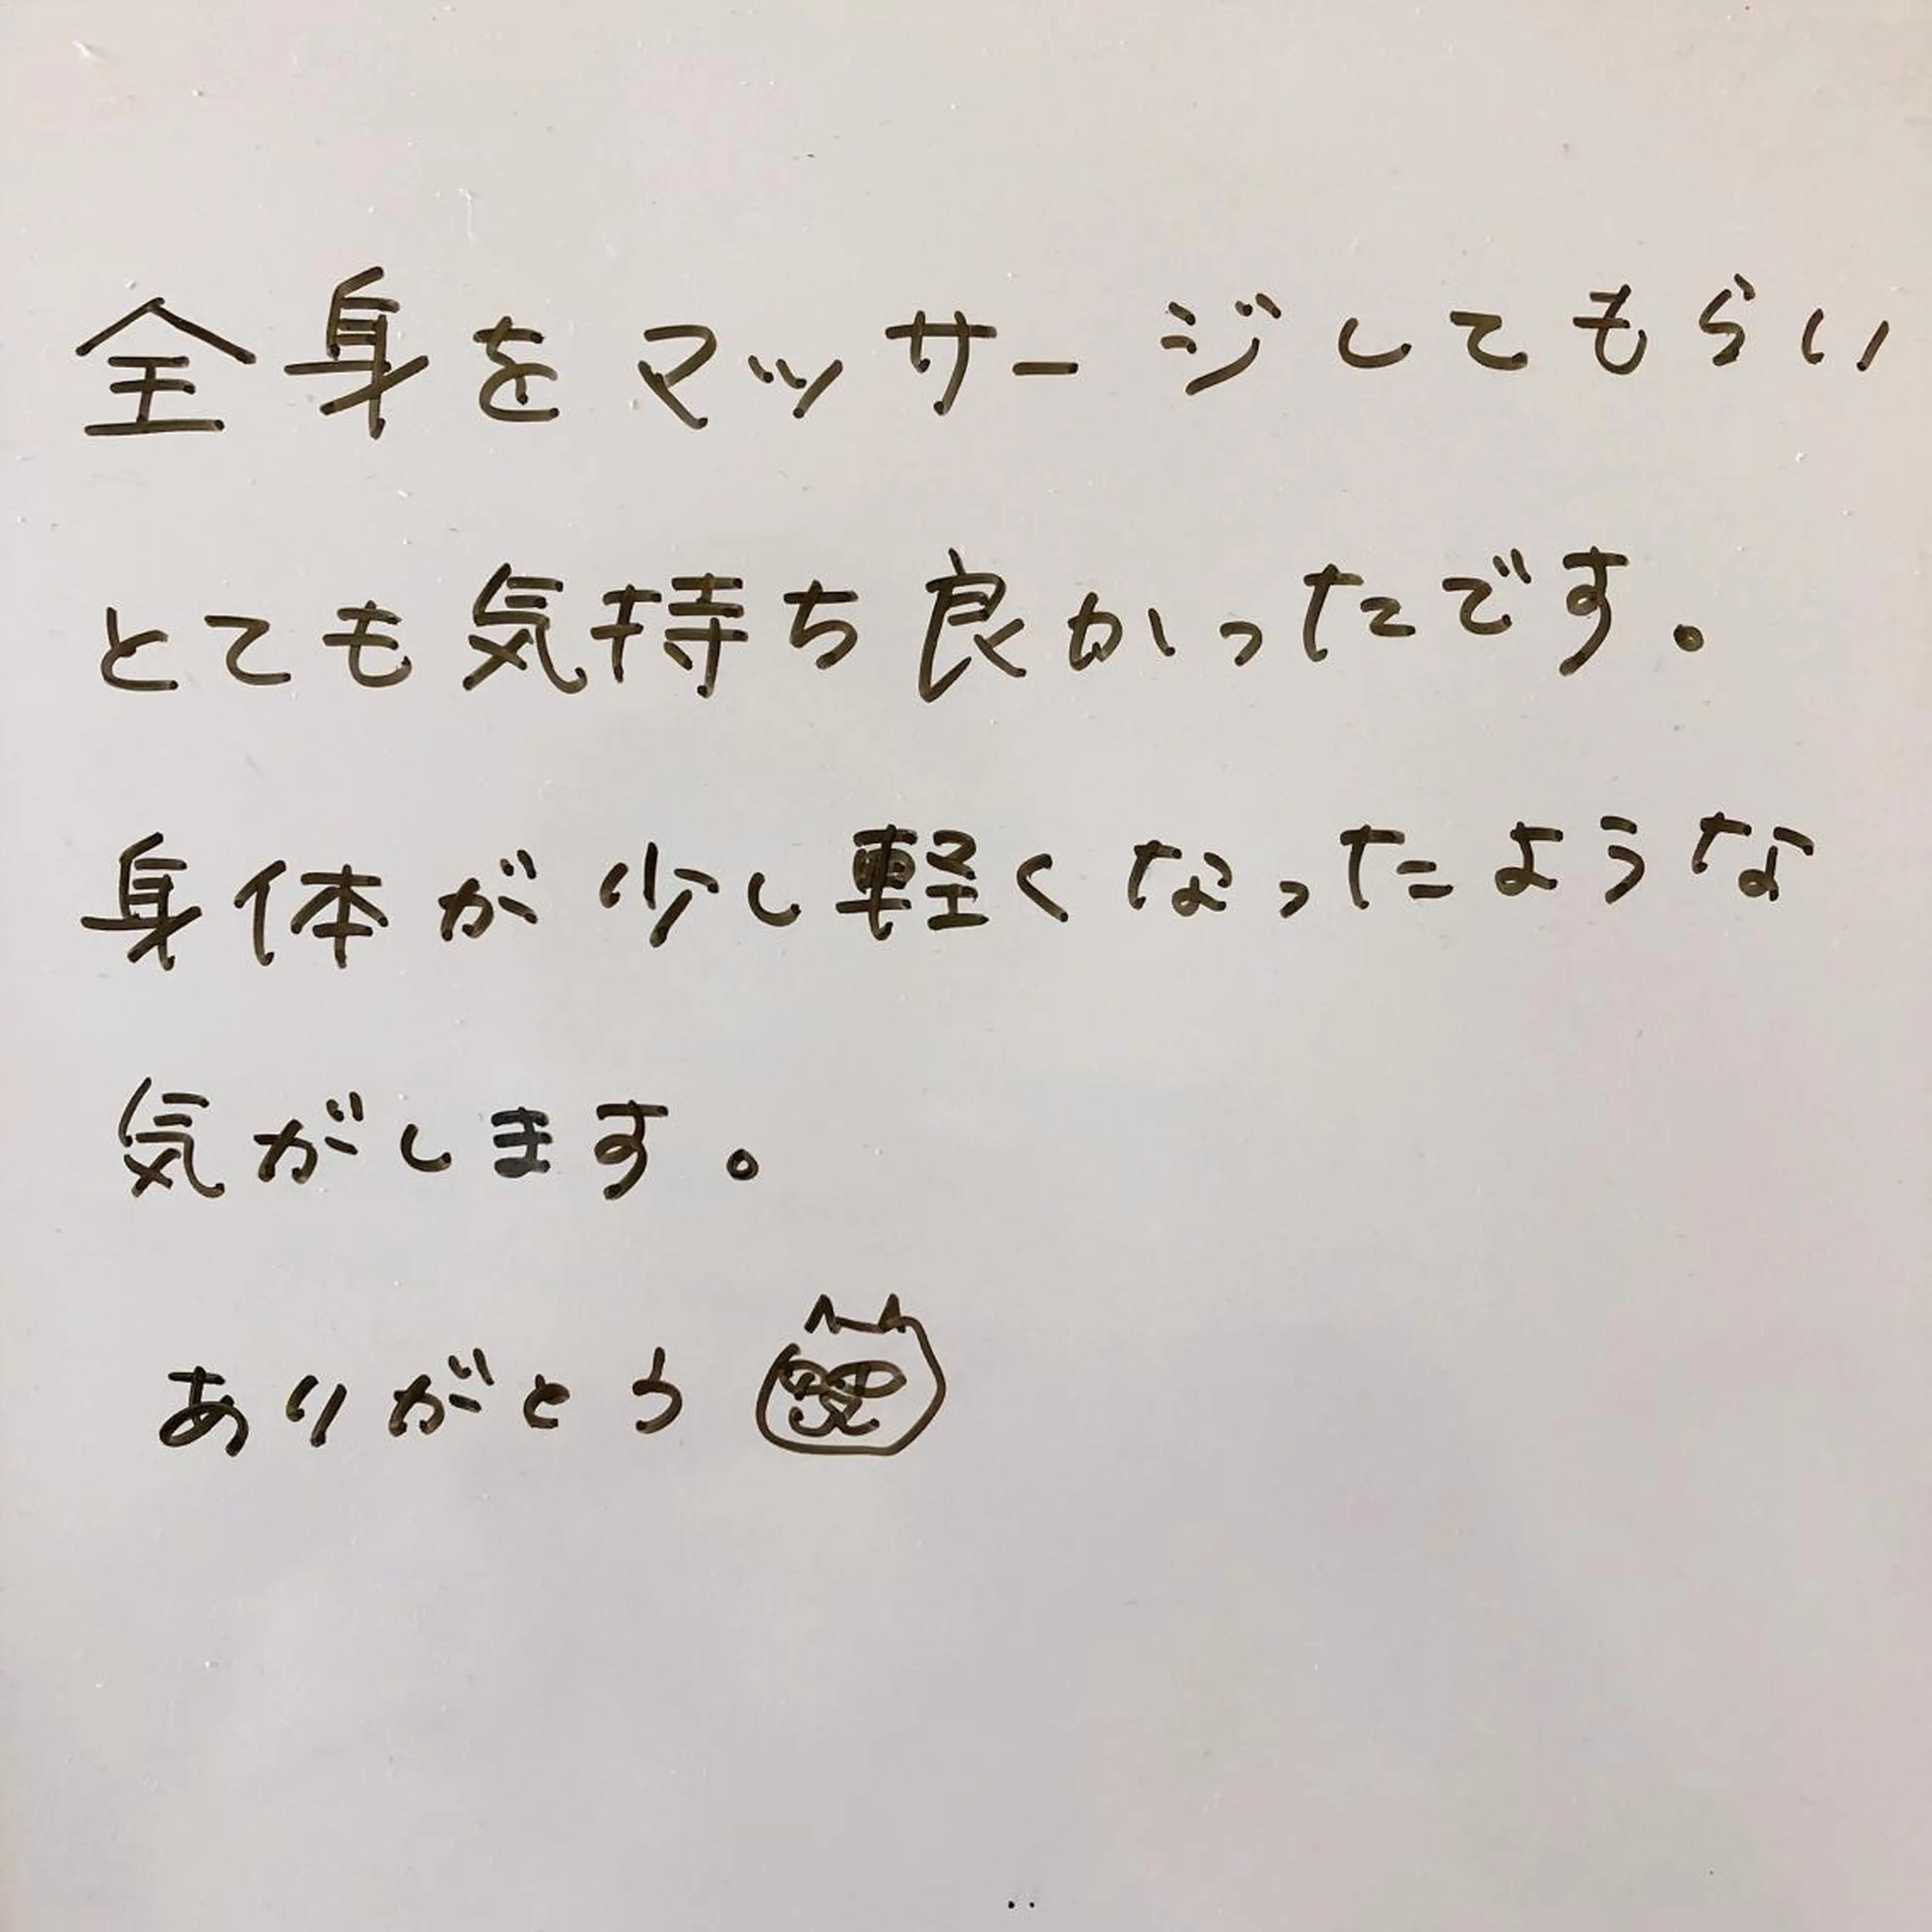 全身をマッサージしてもらい
とても気持ち良かったです。
身体が少し軽くなったような
気がします。
ありがとう